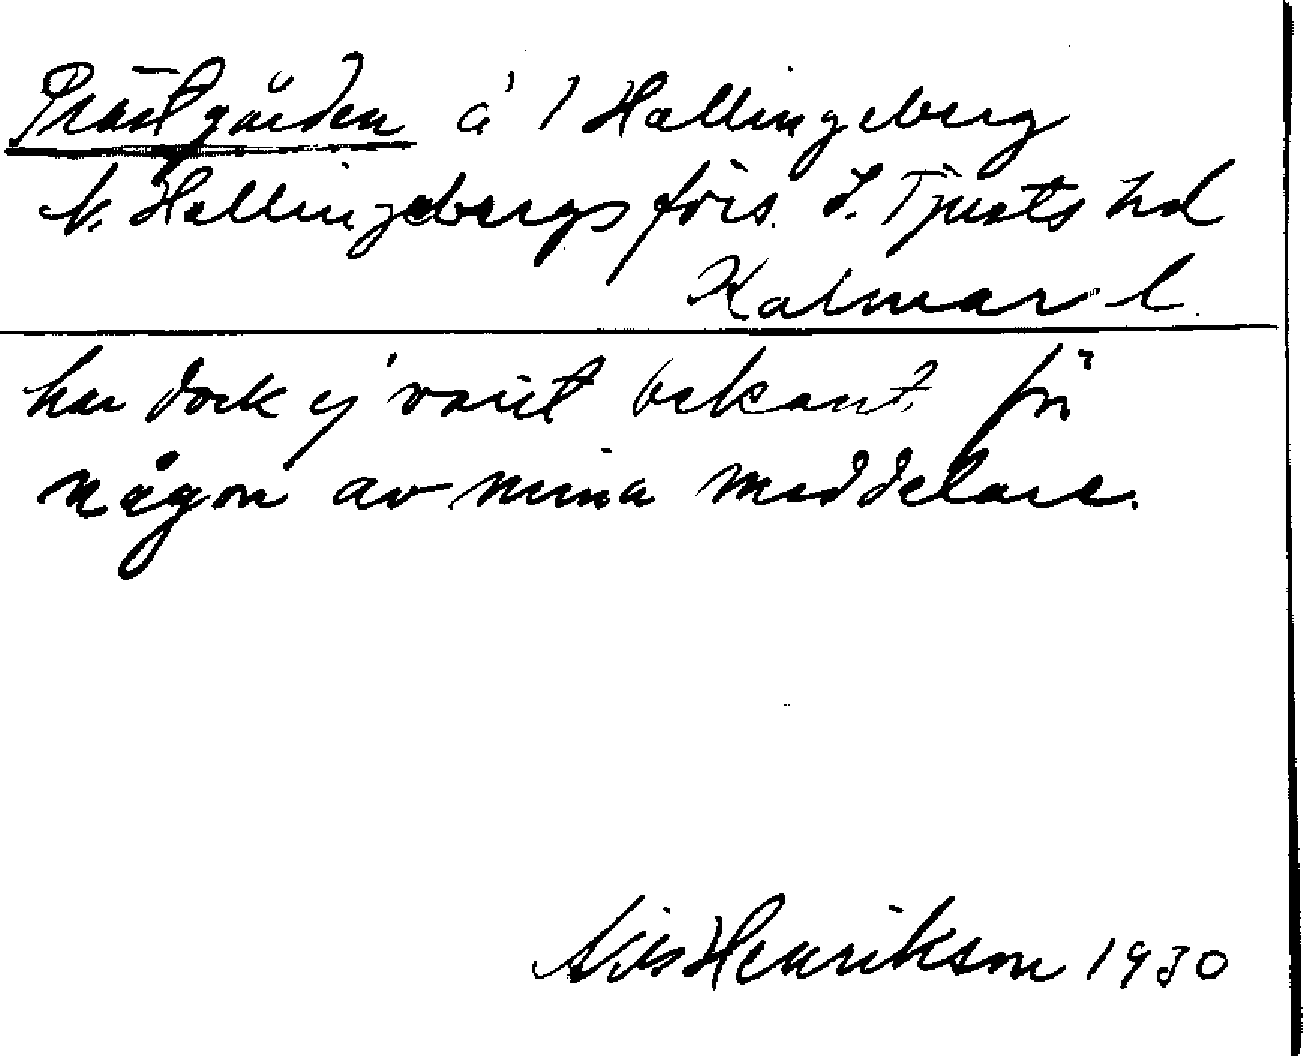 Prästgården å 1 Hallingeberg
N. Hallingebergs förs. S. Tjusts hd
Kalmar l.
har dock ej varit bekant för
någon av mina meddelare.
Nils Henrikson 1930